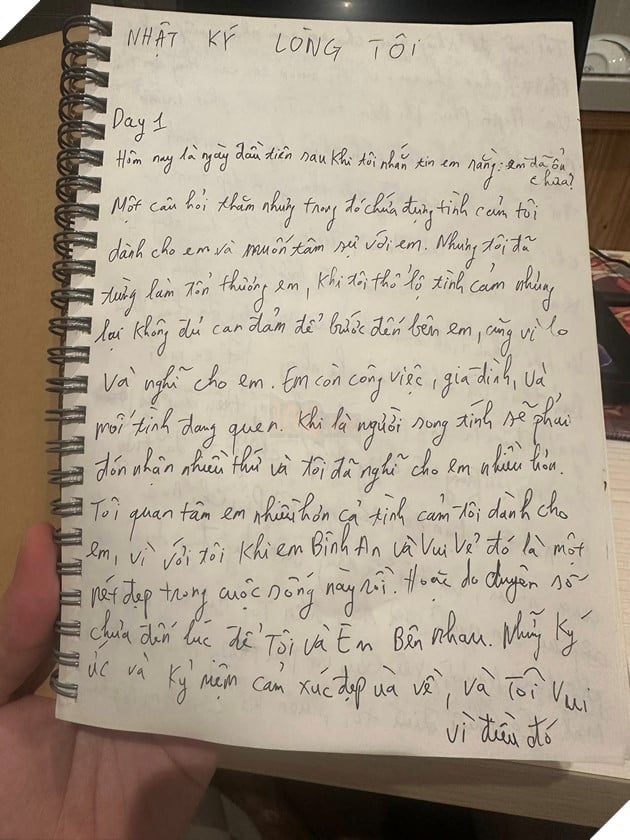 NHẬT KÝ LÒNG TÔI
Day 1
Hôm nay là ngày đầu tiên sau khi tôi nhắn tin em rằng: em đã ổn
chưa?
Một câu hỏi thăm nhưng trong đó chứa đựng tình cảm tôi
dành cho em và muốn tâm sự với em. Nhưng tôi đã
từng làm tổn thương em, khi tôi thổ lộ tình cảm nhưng
lại không đủ can đảm để bước đến bên em, cũng vì lo
và nghĩ cho em. Em còn công việc, gia đình, và
mối tình đang quen. Khi là người song tính sẽ phải
đón nhận nhiều thứ và tôi đã nghĩ cho em nhiều hơn.
Tôi quan tâm em nhiều hơn cả tình cảm tôi dành cho
em, vì với tôi khi em Bình An và Vui Vẻ đó là một
nét đẹp trong cuộc sống này rồi. Hoặc do duyên số
chưa đến lúc để Tôi và Em Bên nhau. Những ký
ức và kỷ niệm cảm xúc đẹp ùa về, và Tôi Vui
vì điều đó